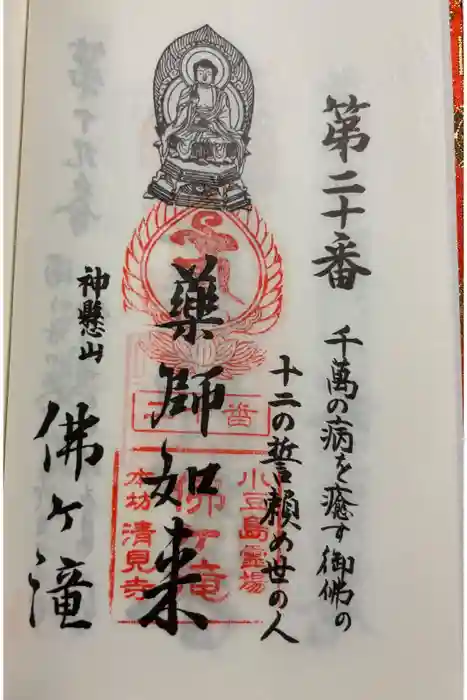 第二十番
千萬の病を癒す御佛の
十二の誓頼め世の人
藥師如来
小豆島霊場
佛ヶ滝
本坊 清見寺
神懸山
佛ヶ滝